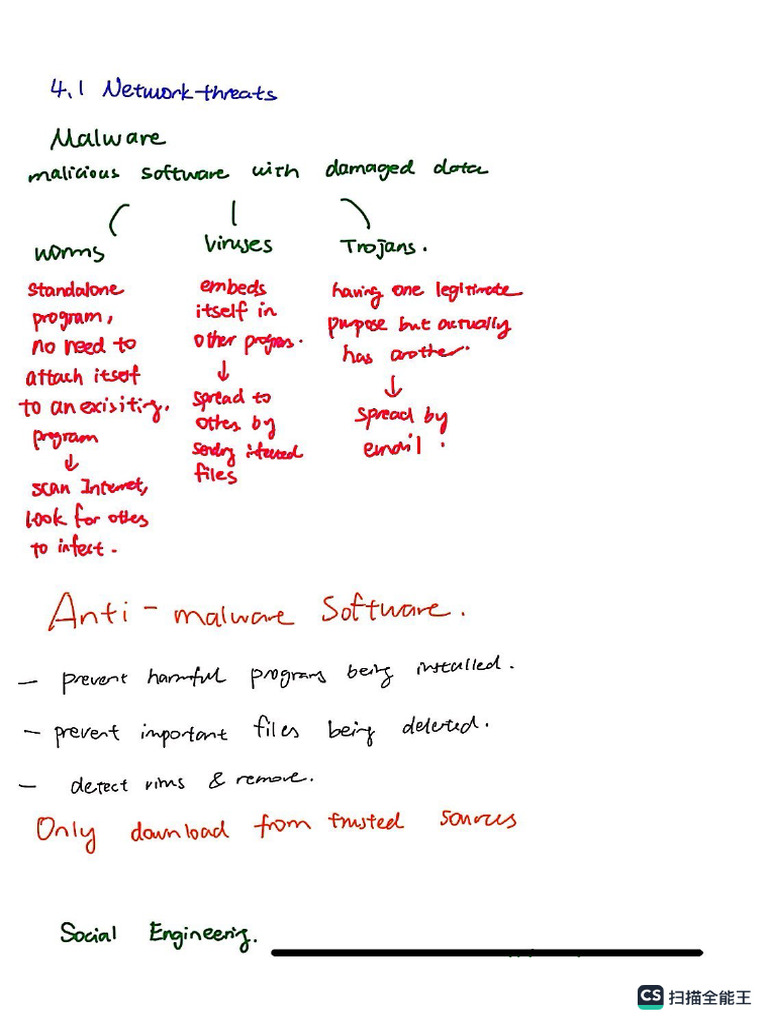 4.1 Network threats
Malware
malicious software with damaged data
worms
standalone
program,
no need to
attach itself
to an exisiting.
program
scan Internet,
look for othes
to infect.
Viruses
embeds
itself in
other progrms.
spread to
othes by
sending infected
files
Trojans.
having one legitimate
purpose but actually
has another.
spread by
email.
Anti-malware Software.
- prevent harmful programs being installed.
- prevent important files being deleted.
- detect virus & remove.
Only download from trusted sources
Social Engineering.
CS 扫描全能王